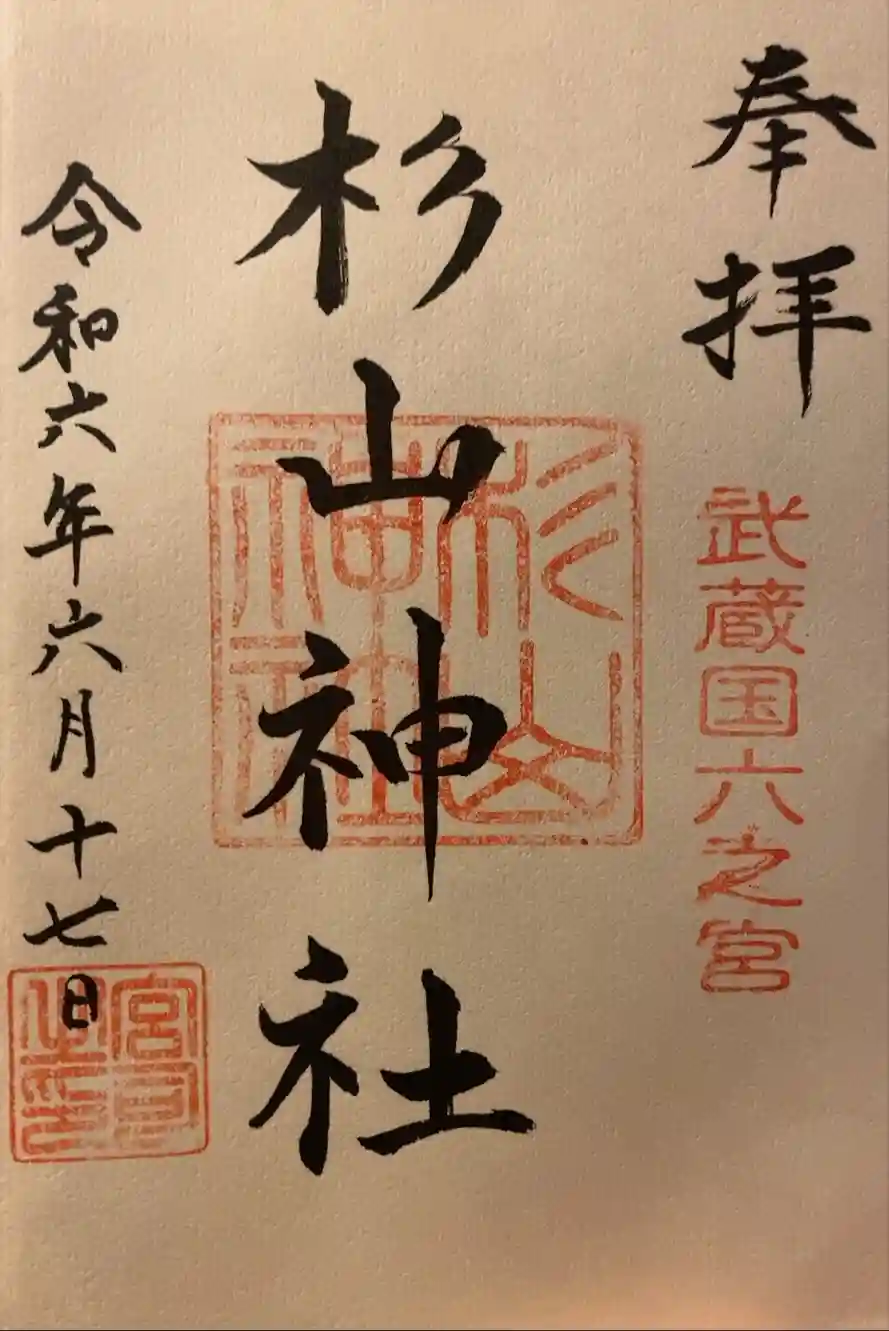 奉拝
武蔵国六之宮
杉山神社
杉山神社
令和六年六月十七日
宮司之印